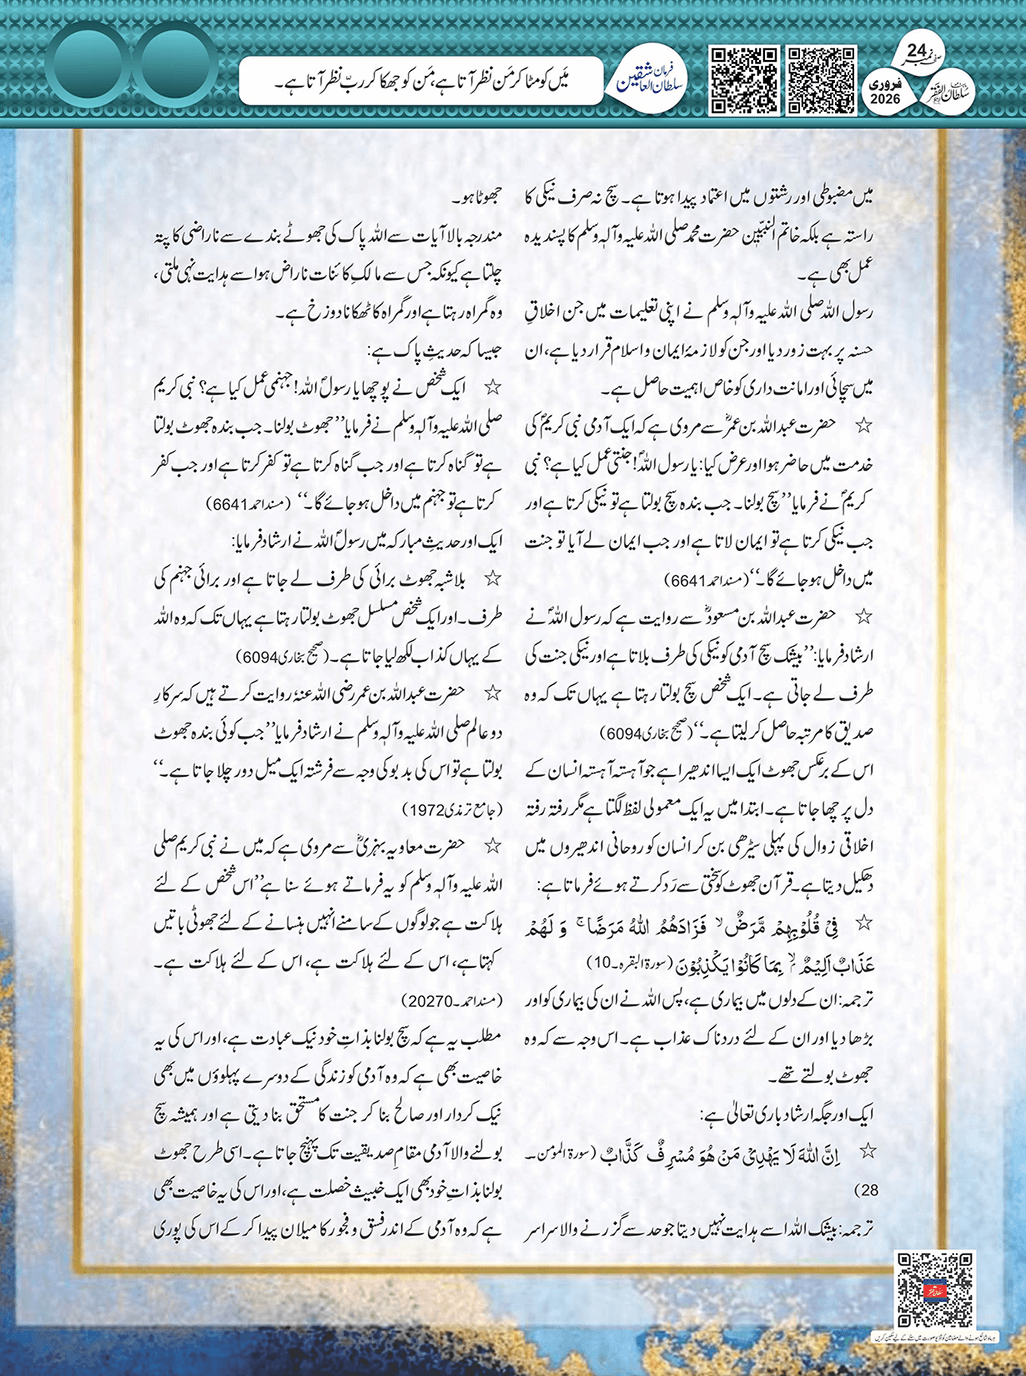 میَں کو مٹا کر مَن نظر آتا ہے، مَن کو جھکا کر ربّ نظر آتا ہے۔
فرمان
سلطان العاشقین
24
صفحہ نمبر
فروری
2026
ماہنامہ
سلطان الفقر
میں مضبوطی اور رشتوں میں اعتماد پیدا ہوتا ہے۔ سچ نہ صرف نیکی کا
راستہ ہے بلکہ خاتم النبیّین حضرت محمد صلی اللہ علیہ وآلہٖ وسلم کا پسندیدہ
عمل بھی ہے۔
رسول اللہ صلی اللہ علیہ وآلہٖ وسلم نے اپنی تعلیمات میں جن اخلاقِ
حسنہ پر بہت زور دیا اور جن کو لازمۂ ایمان و اسلام قرار دیا ہے، ان
میں سچائی اور امانت داری کو خاص اہمیت حاصل ہے۔
☆ حضرت عبداللہ بن عمرؓ سے مروی ہے کہ ایک آدمی نبی کریمؐ کی
خدمت میں حاضر ہوا اور عرض کیا: یا رسول اللہؐ! جنتی عمل کیا ہے؟ نبی
کریمؐ نے فرمایا ’’سچ بولنا۔ جب بندہ سچ بولتا ہے تو نیکی کرتا ہے اور
جب نیکی کرتا ہے تو ایمان لاتا ہے اور جب ایمان لے آیا تو جنت
میں داخل ہو جائے گا۔‘‘ (مسند احمد 6641)
☆ حضرت عبداللہ بن مسعودؓ سے روایت ہے کہ رسول اللہؐ نے
ارشاد فرمایا: ’’بیشک سچ آدمی کو نیکی کی طرف بلاتا ہے اور نیکی جنت کی
طرف لے جاتی ہے۔ ایک شخص سچ بولتا رہتا ہے یہاں تک کہ وہ
صدیق کا مرتبہ حاصل کر لیتا ہے۔‘‘ (صحیح بخاری 6094)
اس کے برعکس جھوٹ ایک ایسا اندھیرا ہے جو آہستہ آہستہ انسان کے
دل پر چھا جاتا ہے۔ ابتدا میں یہ ایک معمولی لفظ لگتا ہے مگر رفتہ رفتہ
اخلاقی زوال کی پہلی سیڑھی بن کر انسان کو روحانی اندھیروں میں
دھکیل دیتا ہے۔ قرآن جھوٹ کو سختی سے رَد کرتے ہوئے فرماتا ہے:
☆ فِیْ قُلُوْبِہِمْ مَّرَضٌ ۙ فَزَادَھُمُ اللّٰہُ مَرَضًا ۚ وَ لَھُمْ
عَذَابٌ اَلِیْمٌ ۙ۬ بِمَا کَانُوْا یَکْذِبُوْنَ (سورۃ البقرہ۔10)
ترجمہ: ان کے دلوں میں بیماری ہے، پس اللہ نے ان کی بیماری کو اور
بڑھا دیا اور ان کے لئے دردناک عذاب ہے۔ اس وجہ سے کہ وہ
جھوٹ بولتے تھے۔
ایک اور جگہ ارشاد باری تعالیٰ ہے:
☆ اِنَّ اللّٰہَ لَا یَھْدِیْ مَنْ ھُوَ مُسْرِفٌ کَذَّابٌ (سورۃ المؤمن۔
28)
ترجمہ: بیشک اللہ اسے ہدایت نہیں دیتا جو حد سے گزرنے والا سراسر
جھوٹا ہو۔
مندرجہ بالا آیات سے اللہ پاک کی جھوٹے بندے سے ناراضی کا پتہ
چلتا ہے کیونکہ جس سے مالکِ کائنات ناراض ہو اسے ہدایت نہی ملتی،
وہ گمراہ رہتا ہے اور گمراہ کا ٹھکانا دوزخ ہے۔
جیسا کہ حدیثِ پاک ہے:
☆ ایک شخص نے پوچھا یا رسولؐ اللہ! جہنمی عمل کیا ہے؟ نبی کریم
صلی اللہ علیہ وآلہٖ وسلم نے فرمایا ’’جھوٹ بولنا۔ جب بندہ جھوٹ بولتا
ہے تو گناہ کرتا ہے اور جب گناہ کرتا ہے تو کفر کرتا ہے اور جب کفر
کرتا ہے تو جہنم میں داخل ہو جائے گا۔‘‘ (مسند احمد 6641)
ایک اور حدیثِ مبارکہ میں رسولؐ اللہ نے ارشاد فرمایا:
☆ بلاشبہ جھوٹ برائی کی طرف لے جاتا ہے اور برائی جہنم کی
طرف۔ اور ایک شخص مسلسل جھوٹ بولتا رہتا ہے یہاں تک کہ وہ اللہ
کے یہاں کذاب لکھ لیا جاتا ہے۔ (صحیح بخاری 6094)
☆ حضرت عبداللہ بن عمر رضی اللہ عنہٗ روایت کرتے ہیں کہ سرکارِ
دو عالم صلی اللہ علیہ وآلہٖ وسلم نے ارشاد فرمایا ’’جب کوئی بندہ جھوٹ
بولتا ہے تو اس کی بدبو کی وجہ سے فرشتہ ایک میل دور چلا جاتا ہے۔‘‘
(جامع ترمذی 1972)
☆ حضرت معاویہ بہزیؓ سے مروی ہے کہ میں نے نبی کریم صلی
اللہ علیہ وآلہٖ وسلم کو یہ فرماتے ہوئے سنا ہے ’’اس شخص کے لئے
ہلاکت ہے جو لوگوں کے سامنے انہیں ہنسانے کے لئے جھوٹی باتیں
کہتا ہے، اس کے لئے ہلاکت ہے، اس کے لئے ہلاکت ہے۔
(مسند احمد۔20270)
مطلب یہ ہے کہ سچ بولنا بذاتِ خود نیک عبادت ہے، اور اس کی یہ
خاصیت بھی ہے کہ وہ آدمی کو زندگی کے دوسرے پہلوؤں میں بھی
نیک کردار اور صالح بنا کر جنت کا مستحق بنا دیتی ہے اور ہمیشہ سچ
بولنے والا آدمی مقامِ صدیقیت تک پہنچ جاتا ہے۔ اسی طرح جھوٹ
بولنا بذاتِ خود بھی ایک خبیث خصلت ہے، اور اس کی یہ خاصیت بھی
ہے کہ وہ آدمی کے اندر فسق و فجور کا میلان پیدا کر کے اس کی پوری